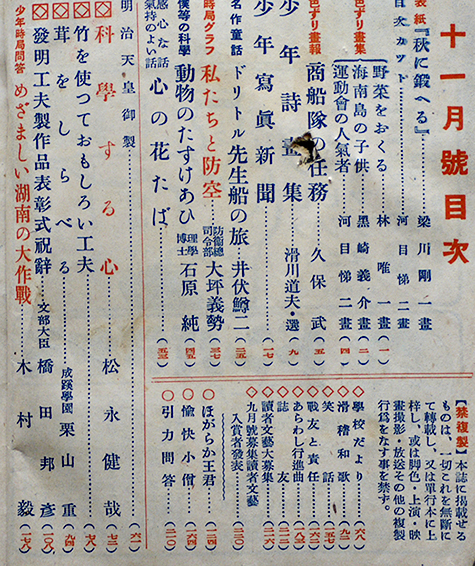 十一月號目次
表紙『秋に鍛へる』 梁川剛一畫
目次カット 河目悌二畫
色ずり畫集
野菜をおくる 林唯一畫 (一)
海南島の子供 黒崎義介畫 (二)
運動會の人氣者 河目悌二畫 (四)
色ずり畫報 商船隊の任務 久保武 (五)
少年詩 集 滑川道夫・選 (九)
少年寫眞新聞 (一七)
名作童話 ドリトル先生船の旅 井伏鱒二 (二五)
時局グラフ 私たちと防空 防衛總司令部 大坪義勢 (三七)
僕等の科學 動物のたすけあひ 理學博士 石原純 (四五)
感心な話 氣持のよい話 心の花たば (五三)
明治天皇御製 (六一)
科學する心 松永健哉 (七二)
竹を使つておもしろい工夫
茸をしらべる 成蹊學園 栗山重 (九四)
發明工夫製作品表彰式祝辭 文部大臣 橋田邦彦 (一〇八)
少年時局問答 めざましい湖南の大作戰 木村毅 (一七八)
【禁複製】本誌に掲載せる
ものは、一切これを無斷に
て轉載し、又は單行本に上
梓し、或は脚色・上演・映
畫撮影・放送その他の複製
行爲をなす事を禁ず。
◇學校だより (六八)
◇滑稽和歌 (九二)
◇笑話 (一五七)
◇戰友と責任 (一六三)
◇あらわし行進曲 (一八八)
◇誌友
◇讀者文藝大募集 (二一六)
◇九月號募集讀者文藝
入賞者發表
◇ほがらか王君 (一二四)
◇愉快小僧 (一六四)
◇引力問答 (二二〇)